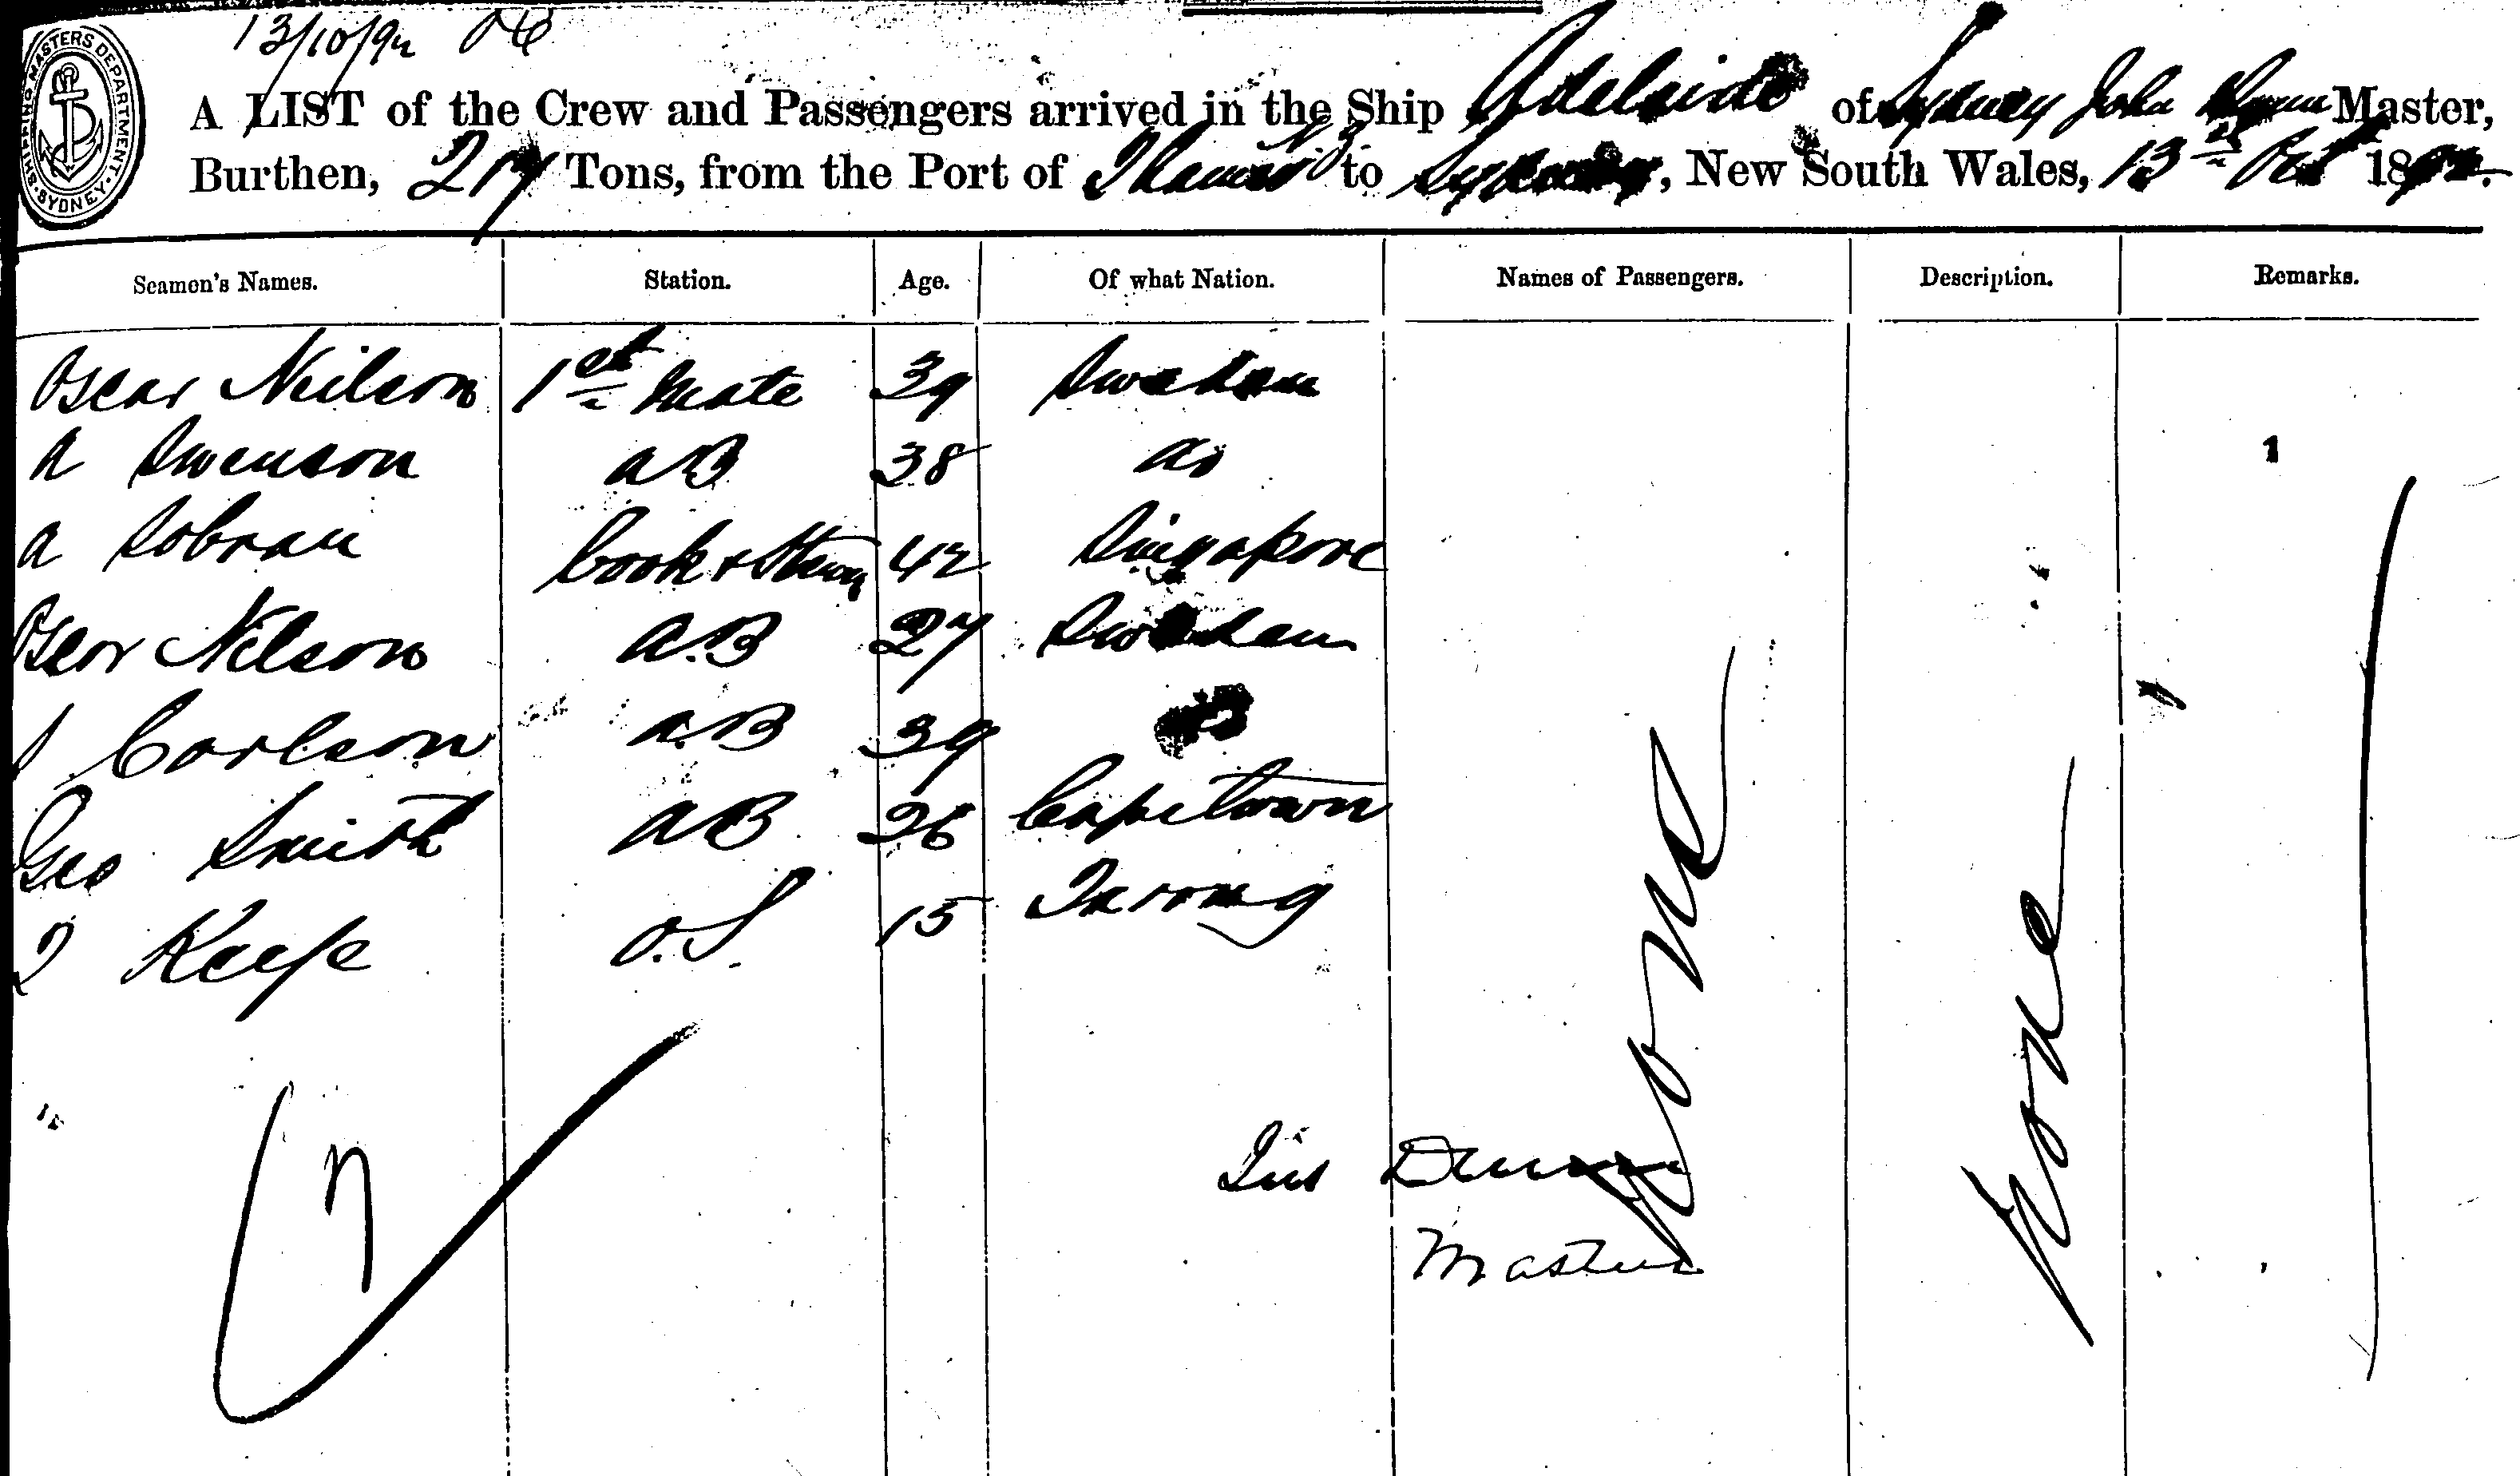 13/10/92
SHIPPING MASTERS DEPARTMENT. SYDNEY.
A LIST of the Crew and Passengers arrived in the Ship Adelaide of Sydney John Master,
Burthen, 217 Tons, from the Port of Thames to Sydney, New South Wales, 13th Oct 1892.
Seamen's Names. Station. Age. Of what Nation. Names of Passengers. Description. Remarks.
Oscar Neilson 1st Mate 39 Sweden
A Swenson AB 38 do
A Sobran Cook & 42 Singapore
Oscar Nelson A.B 27 Sweden
Carlson A.B 39 do
Geo Smith AB 26 Capetown
Keefe O.S 15
None None
7
Master